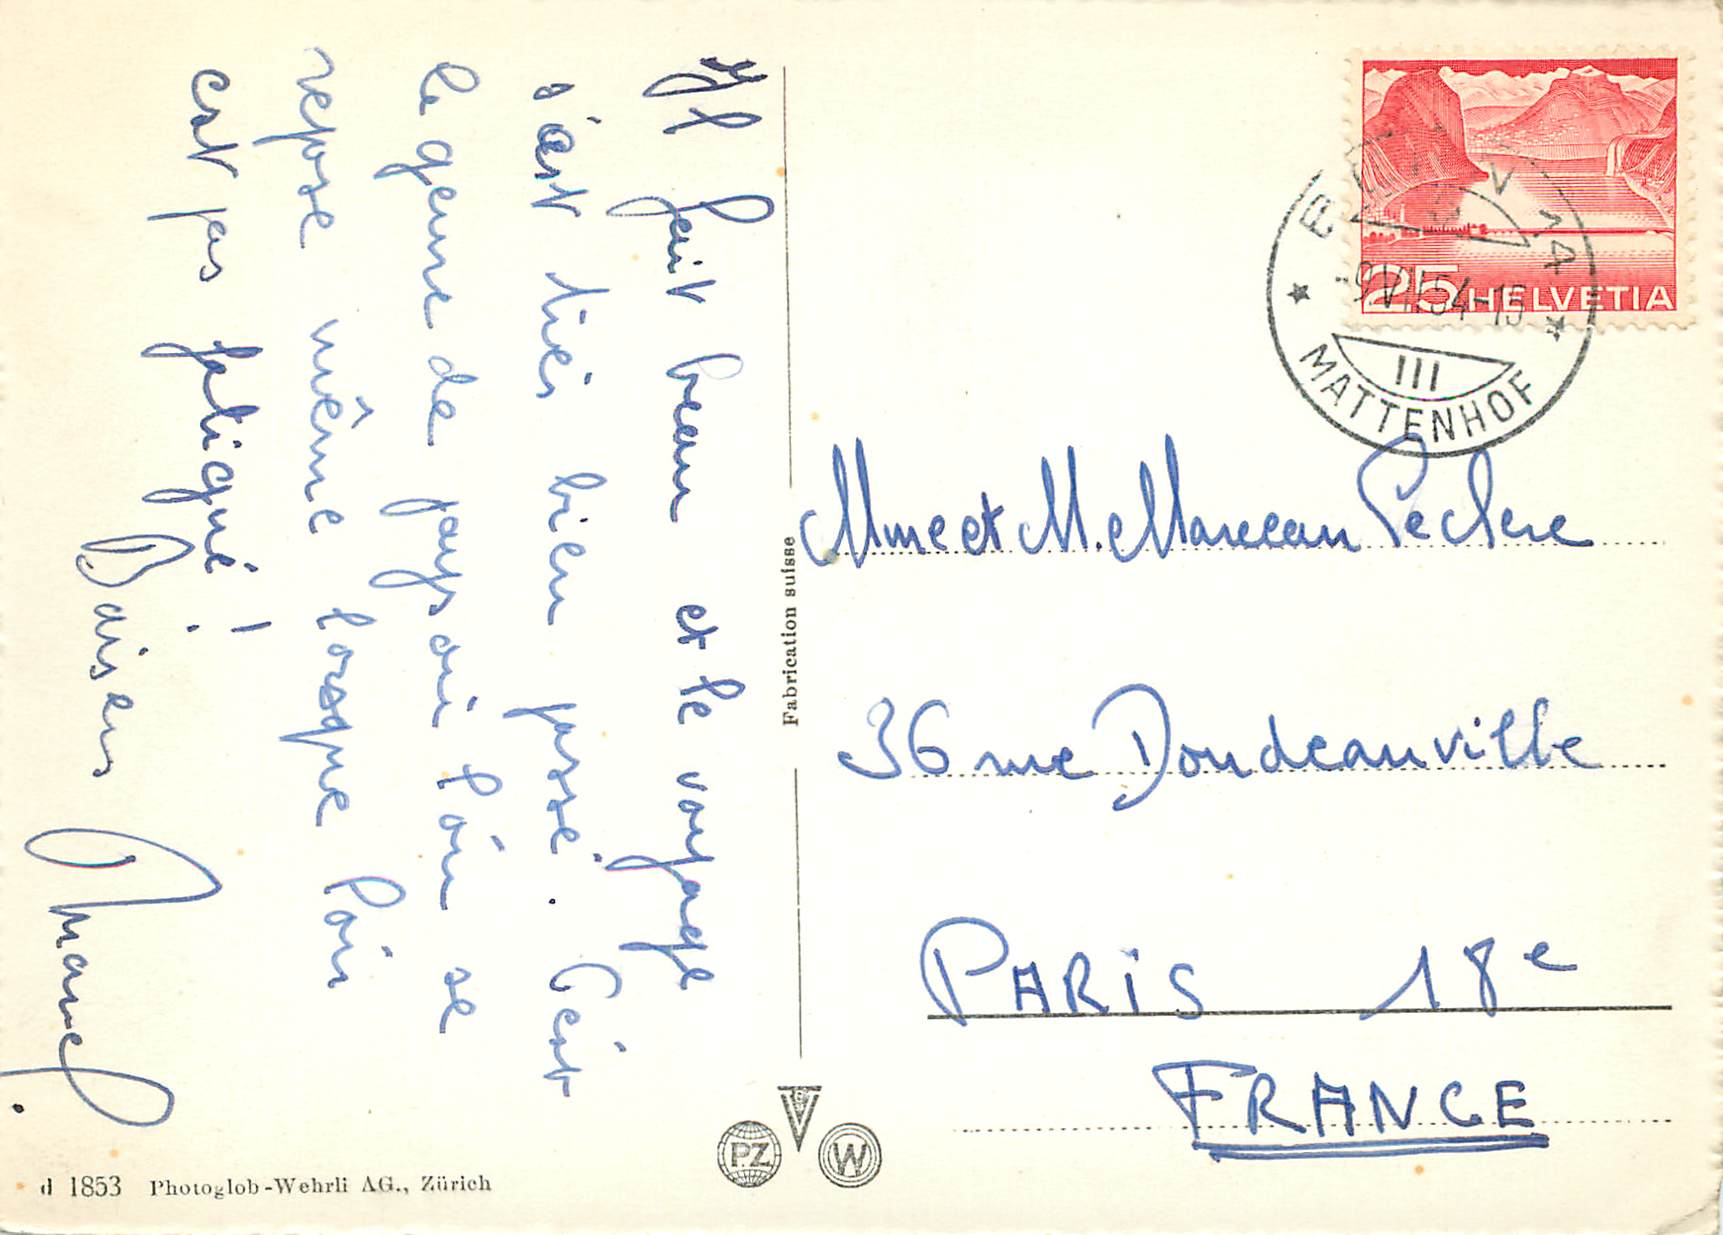 Il fait beau et le voyage
s'est très bien passé. C'est
le genre de pays où l'on se
repose même lorsque l'on
est pas fatigué !
Baisers
Marcel
Fabrication suisse
25 HELVETIA
-9.VII.54-15
III
MATTENHOF
Mme et M. Marceau Leclere
36 rue Doudeauville
PARIS 18e
FRANCE
PZ
W
d 1853 Photoglob-Wehrli AG., Zürich